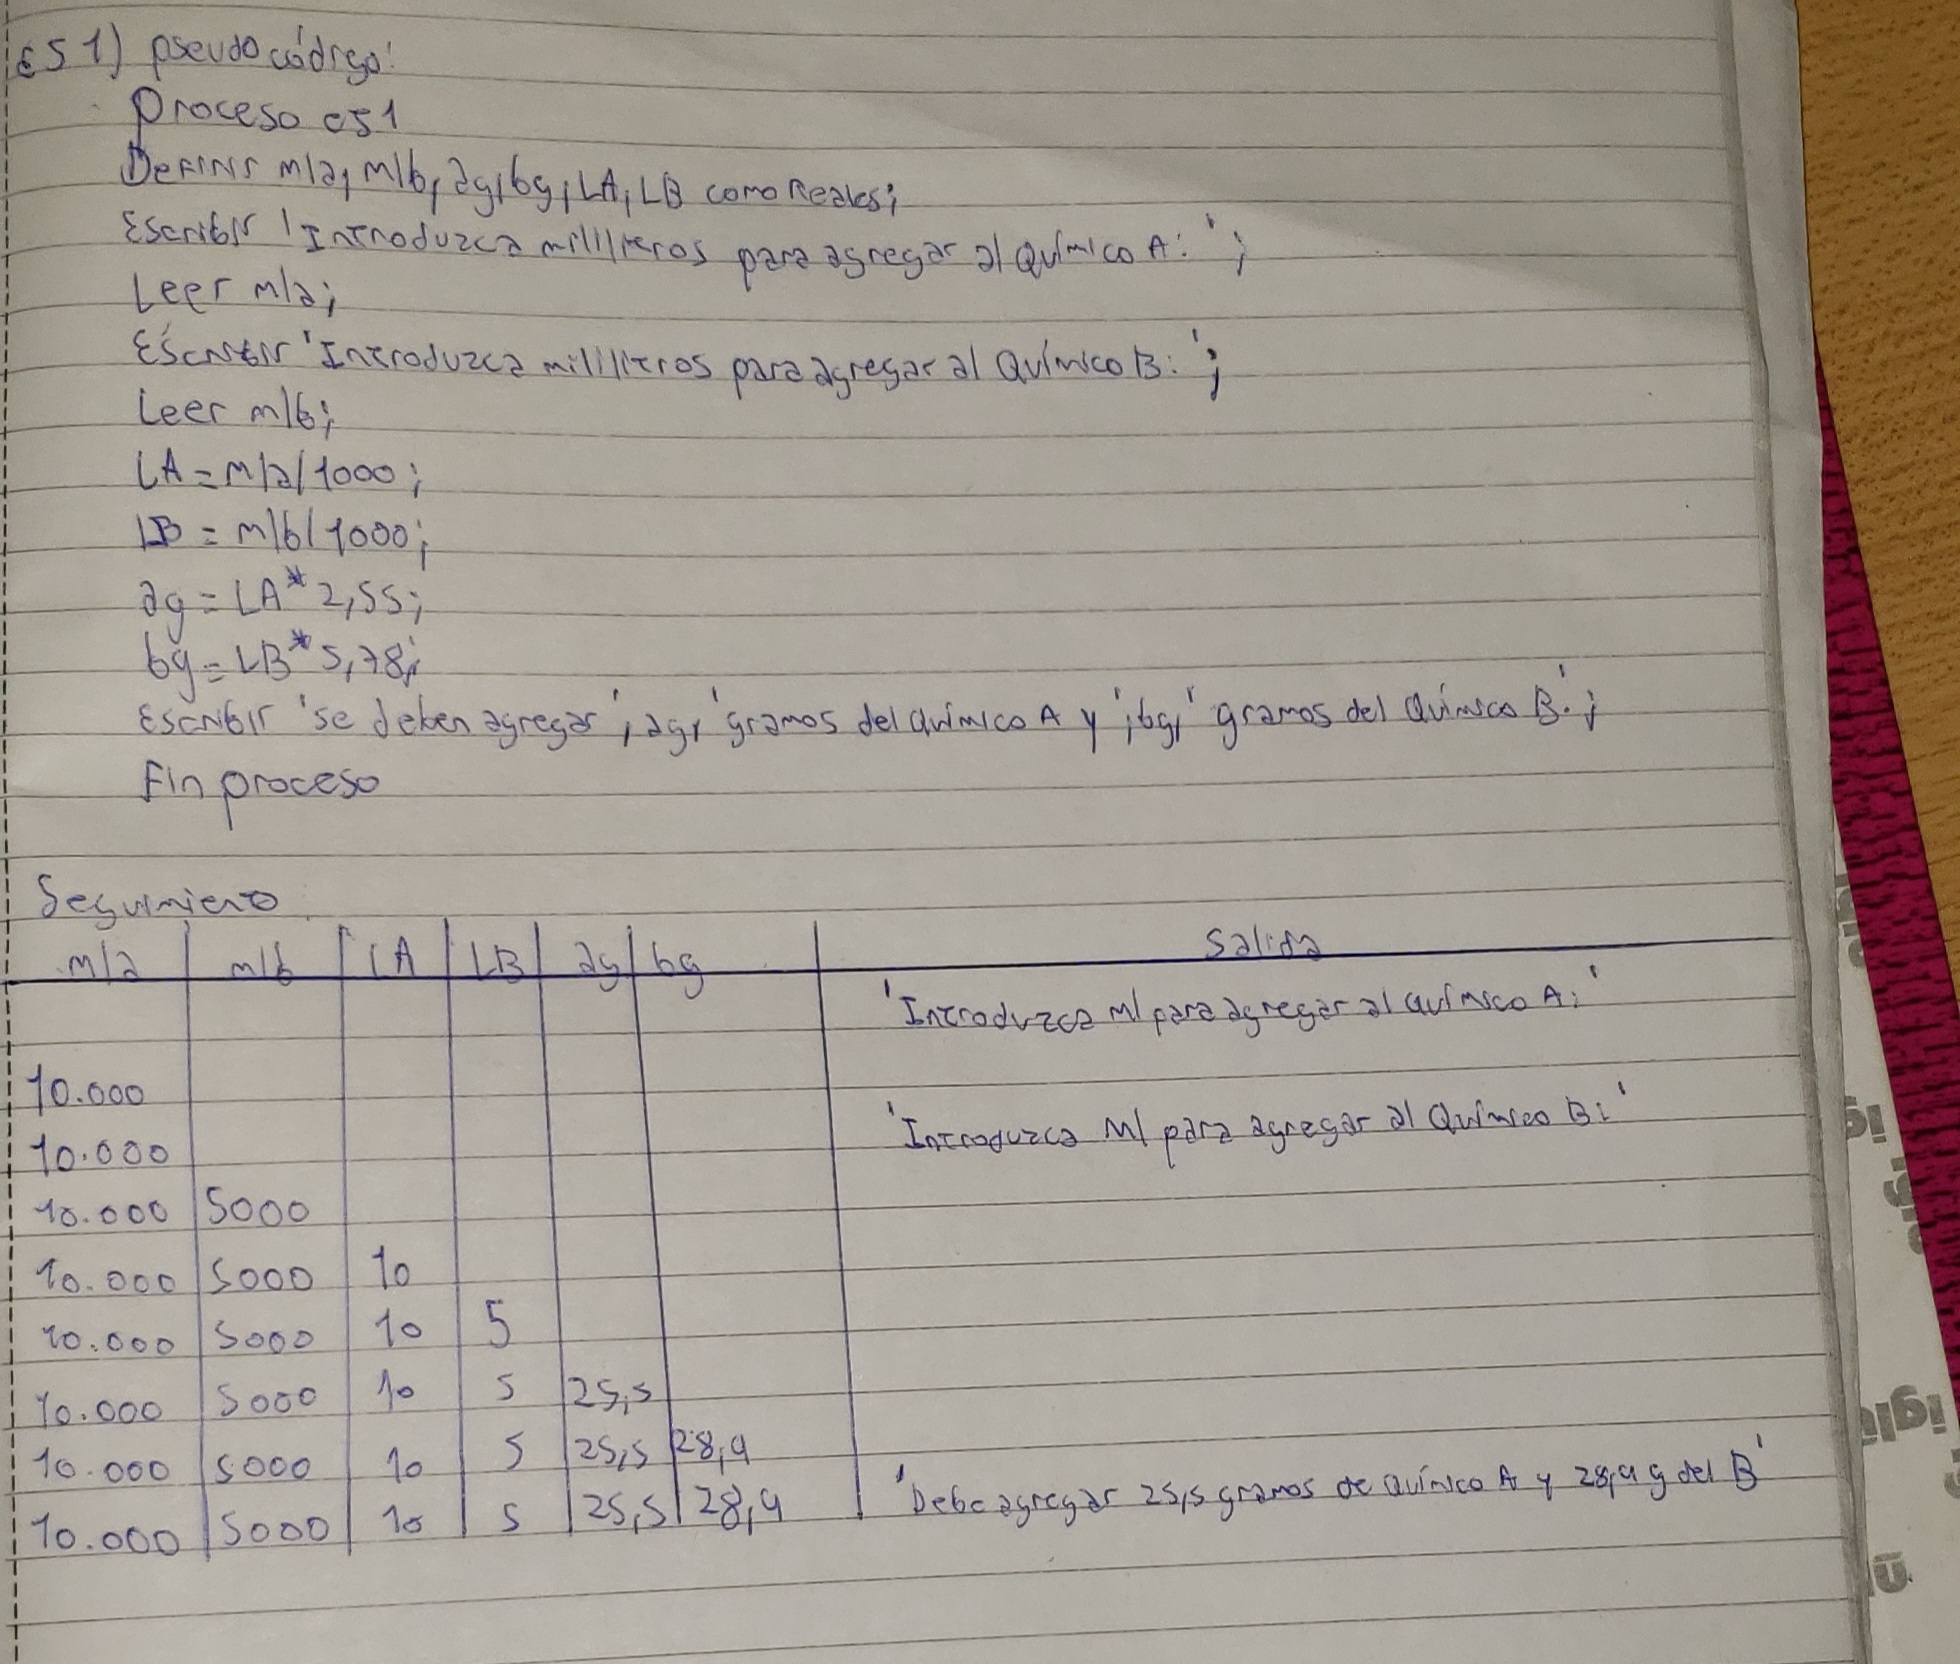 es1) pseudocódigo:
Proceso es1
Definir mla, mlb, ag, bg, LA, LB como Reales;
Escribir 'Introduzca mililiteros para agregar al Químico A: ';
Leer mla;
Escribir 'Introduzca mililiteros para agregar al Químico B: ';
Leer mlb;
LA = mla/1000;
LB = mlb/1000;
ag = LA * 2,55;
bg = LB * 5,78;
Escribir 'se deben agregar', ag, 'gramos del químico A y', bg, 'gramos del Químico B.';
Fin proceso
Seguimiento
mla mlb LA LB ag bg Salida
'Introduzca ml para agregar al químico A:'
10.000
10.000 'Introduzca Ml para agregar al Químico B:'
10.000 5000
10.000 5000 10
10.000 5000 10 5
10.000 5000 10 5 25,5
10.000 5000 10 5 25,5 28,9
10.000 5000 10 5 25,5 28,9 'Debe agregar 25,5 gramos de químico A y 28,9 g del B'